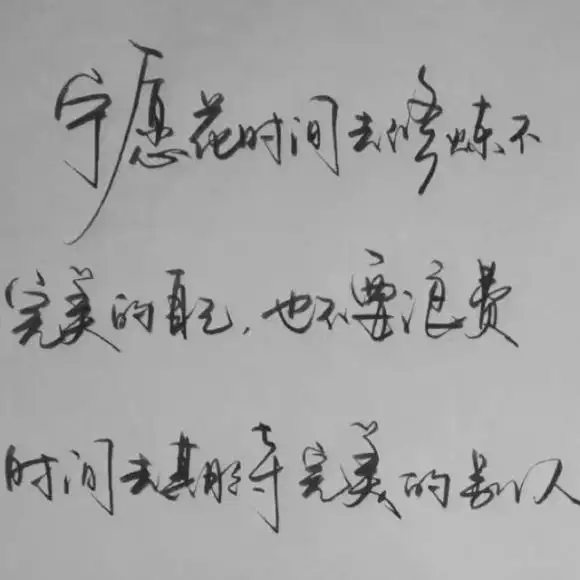 宁愿花时间去修炼不
完美的自己,也不要浪费
时间去期待完美的别人